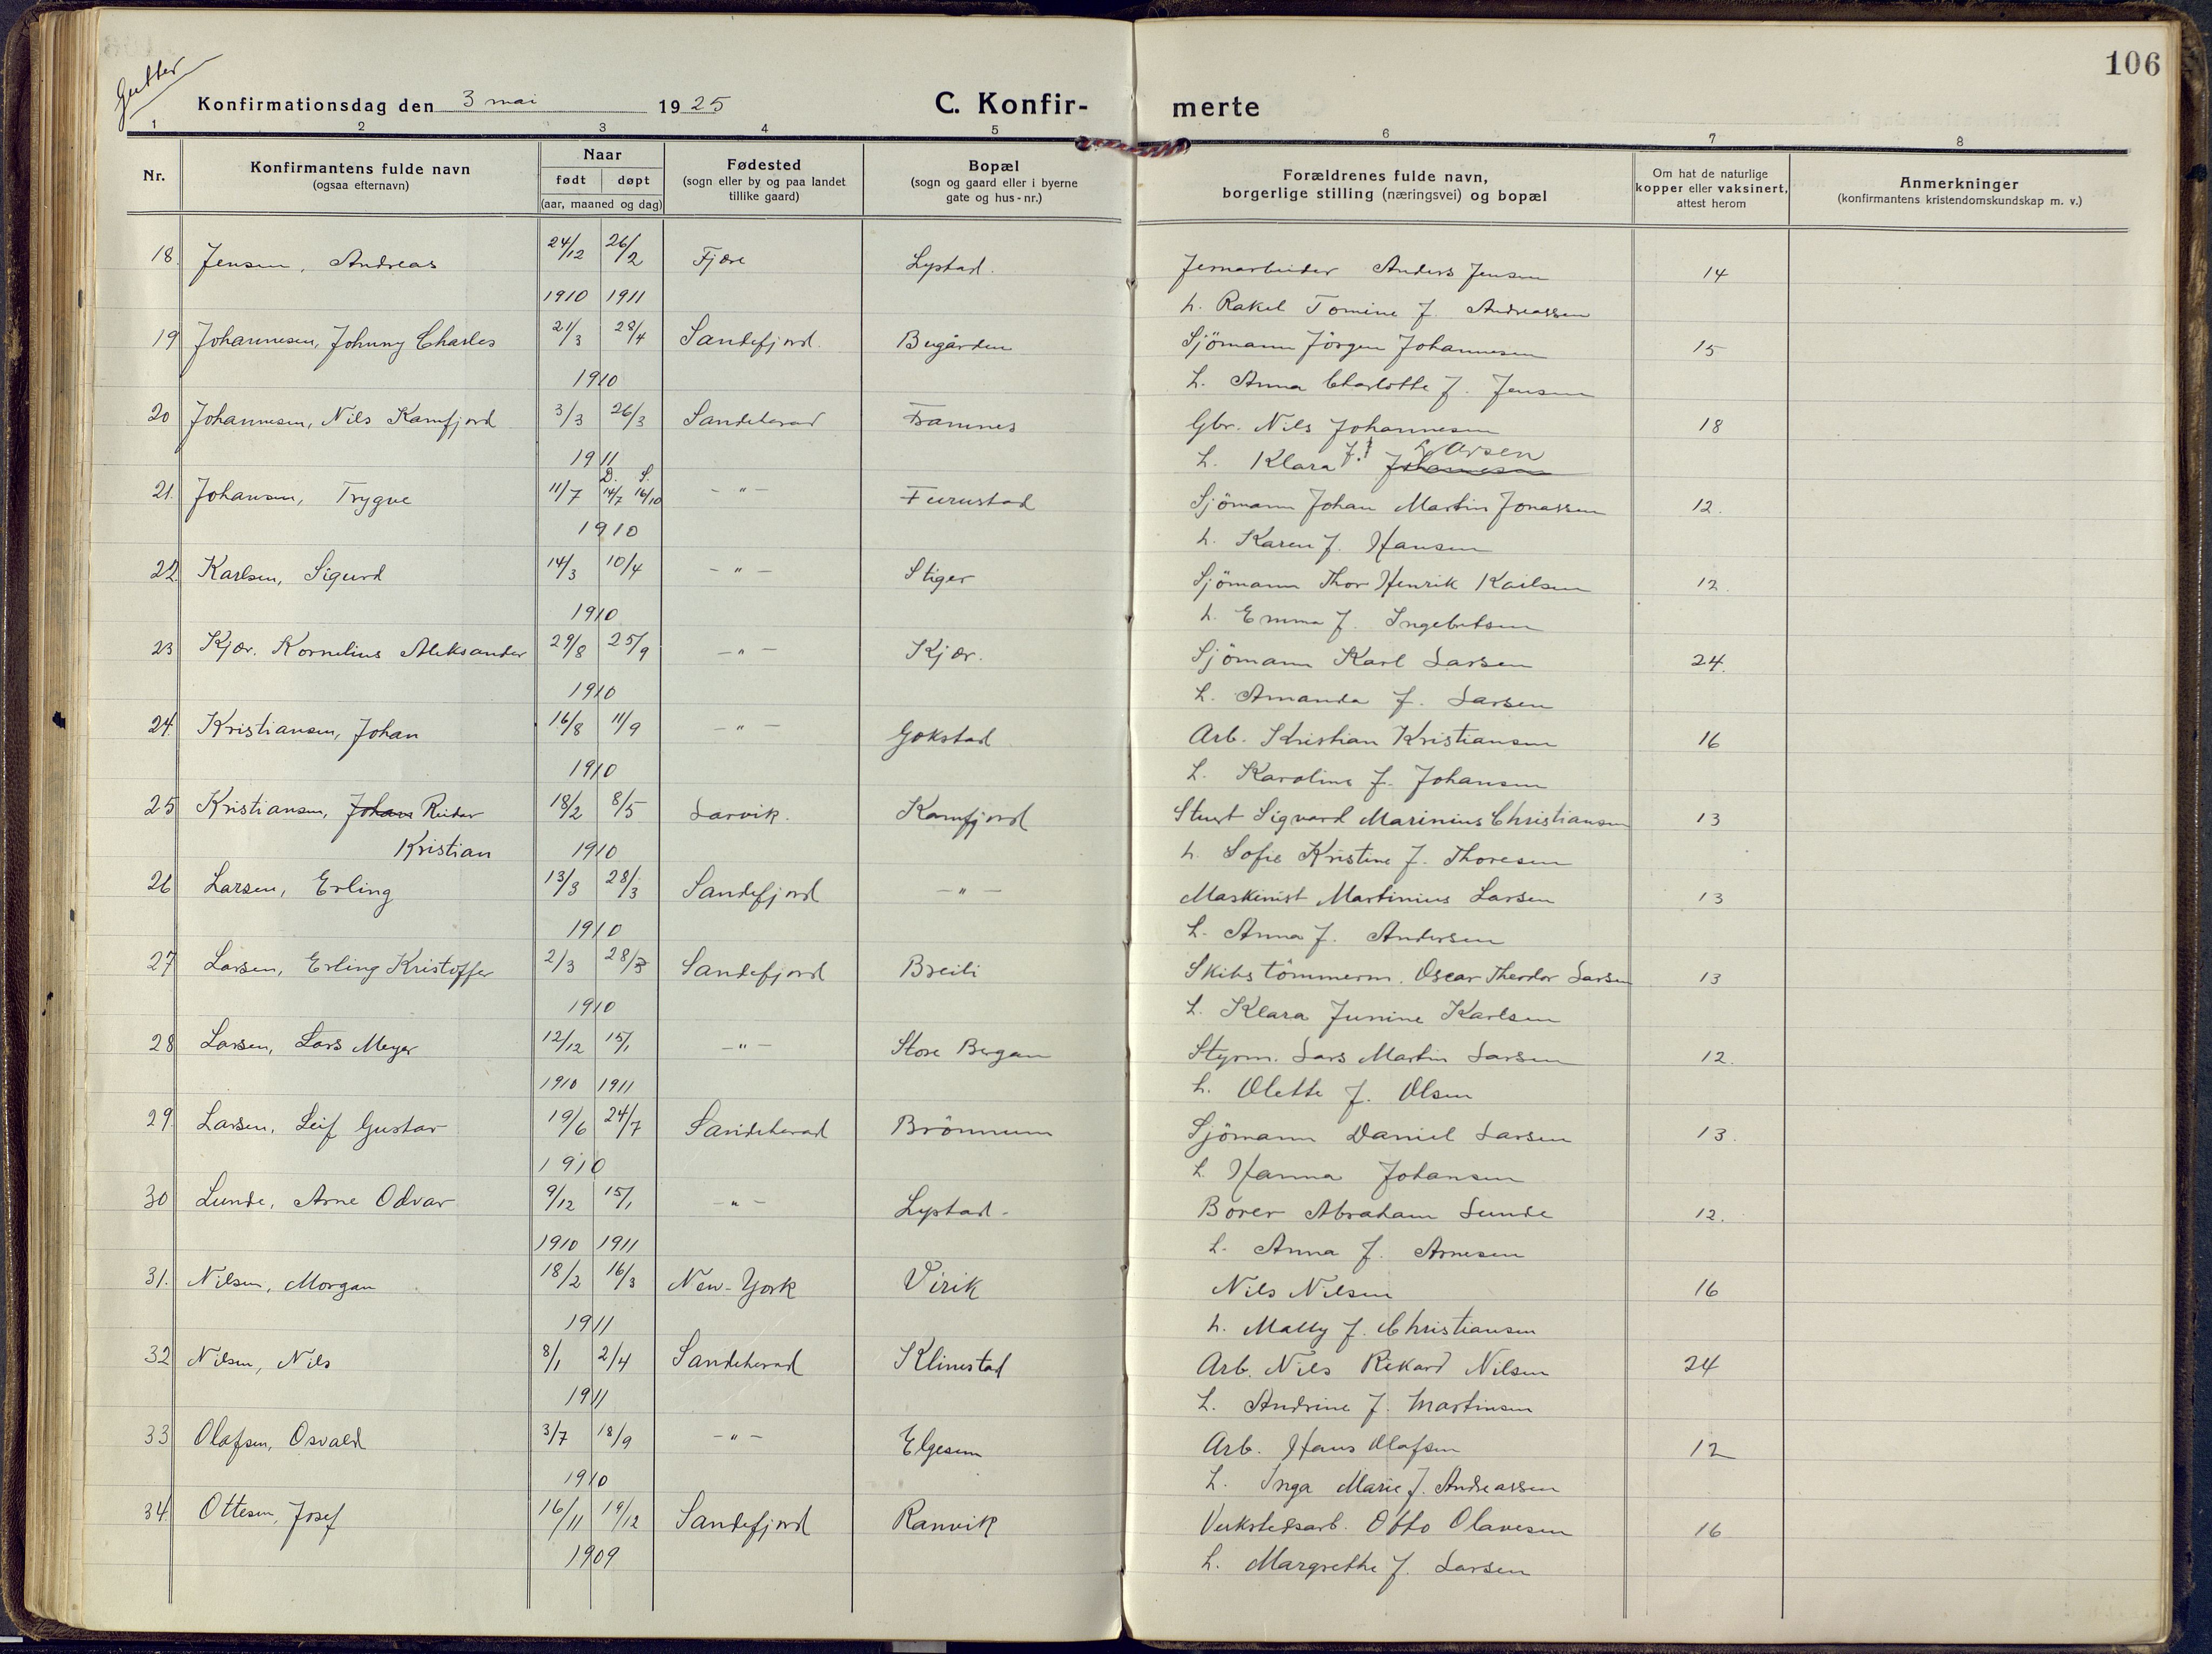 106
Gutter
Konfirmationsdag den 3 mai 1925 C. Konfir- merte
1 2 3 4 5 6 7 8
Nr. Konfirmantens fulde navn (ogsaa efternavn) Naar født døpt (aar, maaned og dag) Fødested (sogn eller by og paa landet tillike gaard) Bopæl (sogn og gaard eller i byerne gate og hus-nr.) Forældrenes fulde navn, borgerlige stilling (næringsvei) og bopæl Om hat de naturlige kopper eller vaksinert, attest herom Anmerkninger (konfirmantens kristendomskundskap m. v.)
18. Jensen, Andreas 24/12 26/2 Fjære Lystad. Jernarbeider Anders Jensen 14
1910 1911 h. Rakel Tomine f. Andreassen
19 Johannesen, Johnny Charles 21/3 28/4 Sandefjord. Bugården Sjömann Jörgen Johannesen 15
1910 h. Anna Charlotte f. Jensen
20 Johannesen, Nils Kamfjord 3/3 26/3 Sandeherad Framnes Gbr. Nils Johannesen 18
1911 h. Klara f. Johannesen Larsen
21. Johansen, Trygve 11/7 D. 14/7 S. 16/10 -"- Furustad Sjömann Johan Martin Jonassen 12.
1910 h. Karen f. Hansen
22. Karlsen, Sigurd 14/3 10/4 -"- Stiger Sjömann Thor Henrik Karlsen 12.
1910 h. Emma f. Ingebretsen
23 Kjær. Kornelius Aleksander 29/8 25/9 -"- Kjær. Sjömann Karl Larsen 24.
1910 h. Amanda f. Larsen
24. Kristiansen, Johan 16/8 11/9 -"- Gokstad Arb. Kristian Kristiansen 16
1910 h. Karoline f. Johansen
25 Kristiansen, Johan Reidar 18/2 8/5 Larvik. Kamfjord Stuert Sigvard Marinius Christiansen 13
Kristian 1910 h. Sofie Kristine f. Thoresen
26 Larsen, Erling 13/3 28/3 Sandefjord -"- Maskinist Martinius Larsen 13
1910 h. Anna f. Andersen
27 Larsen, Erling Kristoffer 2/3 28/3 Sandefjord Breili Skibstömmerm. Oscar Theodor Larsen 13
1910 h. Klara Junine Karlsen
28 Larsen, Lars Meyer 12/12 15/1 -"- Store Bergan Styrm. Lars Martin Larsen 12.
1910 1911 h. Olette f. Olsen
29. Larsen, Leif Gustav 19/6 24/7 Sandeherad Brönnum Sjömann Daniel Larsen 13.
1910 h. Hanna Johansen
30 Lunde, Arne Odvar 9/12 15/1 -"- Lystad. Borer Abraham Lunde 12.
1910 1911 h. Anna f. Arnesen
31. Nilsen, Morgan 18/2 16/3 New-York Virik Nils Nilsen 16
1911 h. Mally f. Christiansen
32 Nilsen, Nils 8/1 2/4 Sandeherad Klinestad Arb. Nils Rikard Nilsen 24
1911 h. Andrine f. Martinsen
33 Olafsen, Osvald 3/7 18/9 -"- Elgesem Arb. Hans Olafsen 12
1910 h. Inga Marie f. Andreassen
34. Ottesen, Josef 16/11 19/12 Sandefjord Ranvik Verkstedsarb. Otto Olavesen 16
1909 h. Margrethe f. Larsen